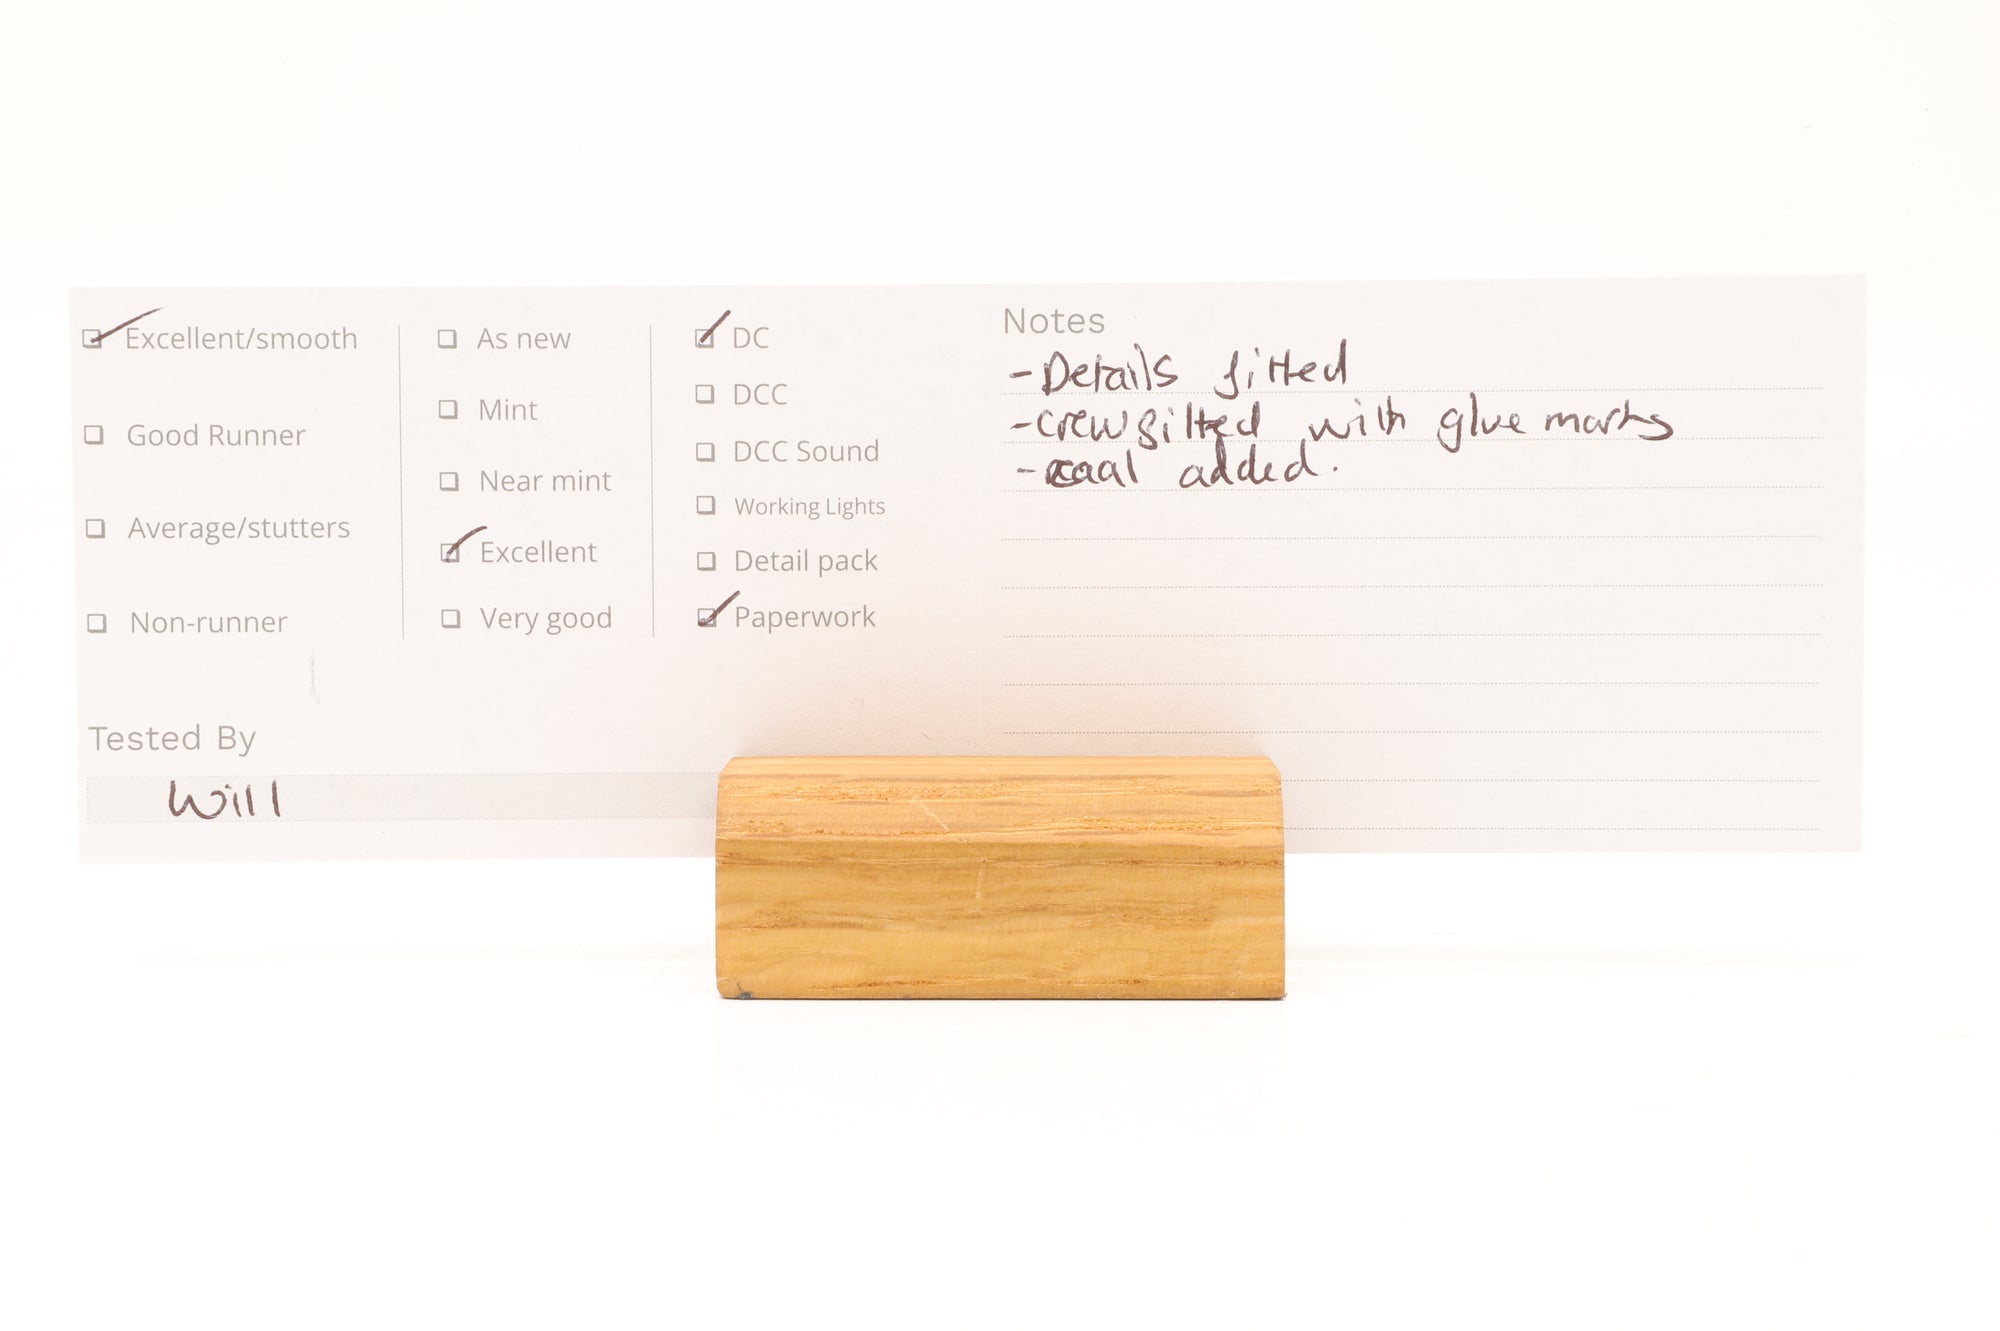 Excellent/smooth
Good Runner
Average/stutters
Non-runner
As new
Mint
Near mint
Excellent
Very good
DC
DCC
DCC Sound
Working Lights
Detail pack
Paperwork
Notes
-Details fitted
-crew fitted with glue marks
-coal added.
Tested By
Will